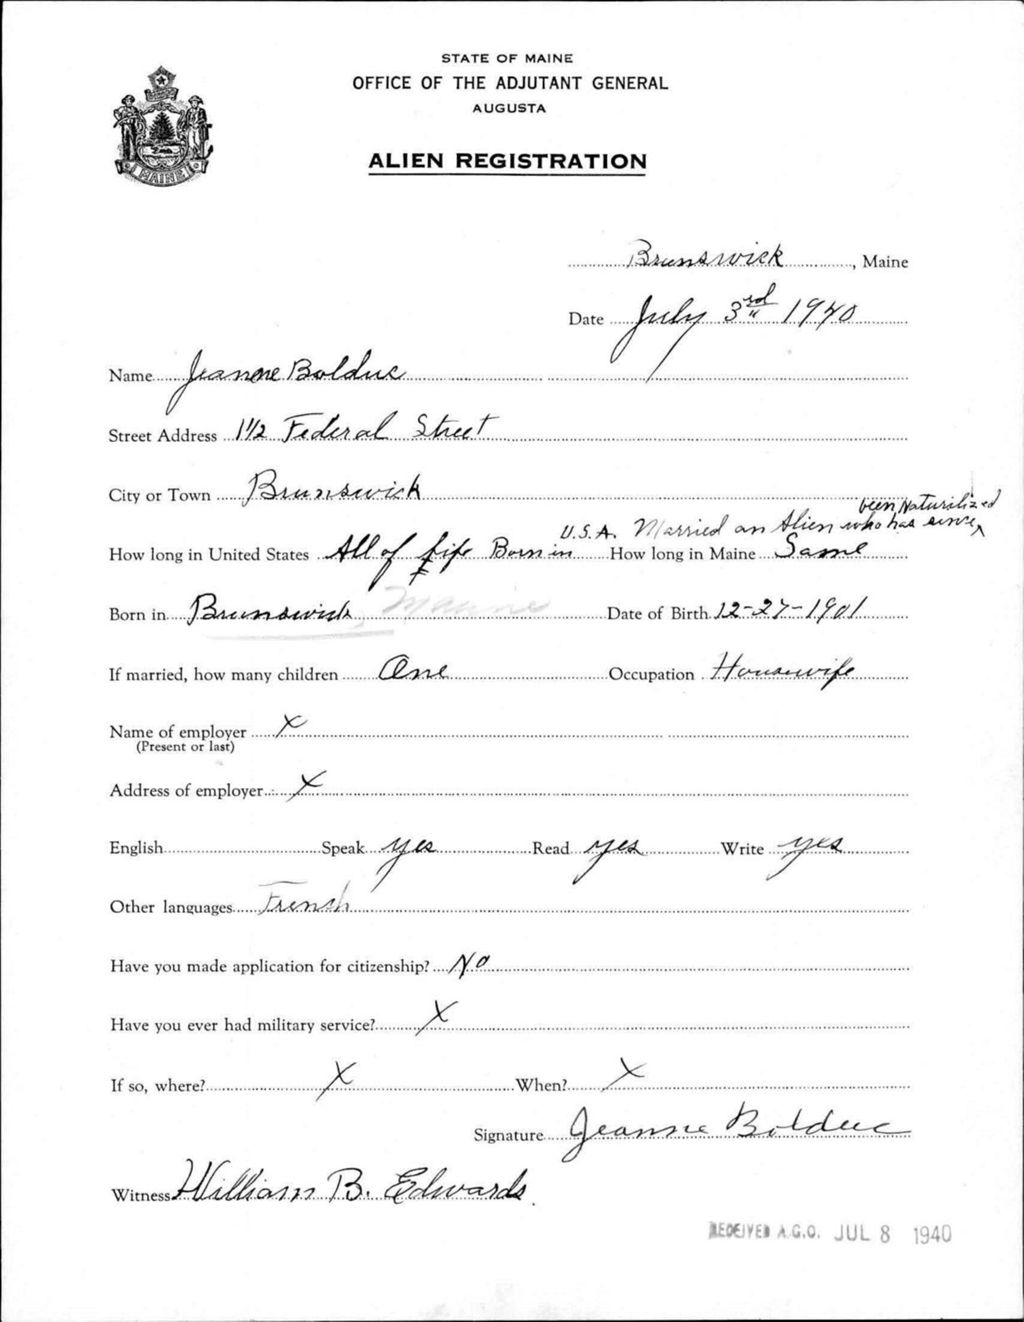 STATE OF MAINE
OFFICE OF THE ADJUTANT GENERAL
AUGUSTA
MAINE
ALIEN REGISTRATION
Brunswick, Maine
Date July 3rd 1940
Name Jeanne Bolduc
Street Address 1 1/2 Federal Street
City or Town Brunswick
been Naturalized
U.S.A. Married an Alien who has since
How long in United States All of life Born in How long in Maine Same
Born in Brunswick, Maine Date of Birth 12-27-1901
If married, how many children One Occupation Housewife
Name of employer X
(Present or last)
Address of employer X
English Speak yes Read yes Write yes
Other languages French
Have you made application for citizenship? No
Have you ever had military service? X
If so, where? X When? X
Signature Jeanne Bolduc
Witness William B. Edwards
RECEIVED A.G.O. JUL 8 1940